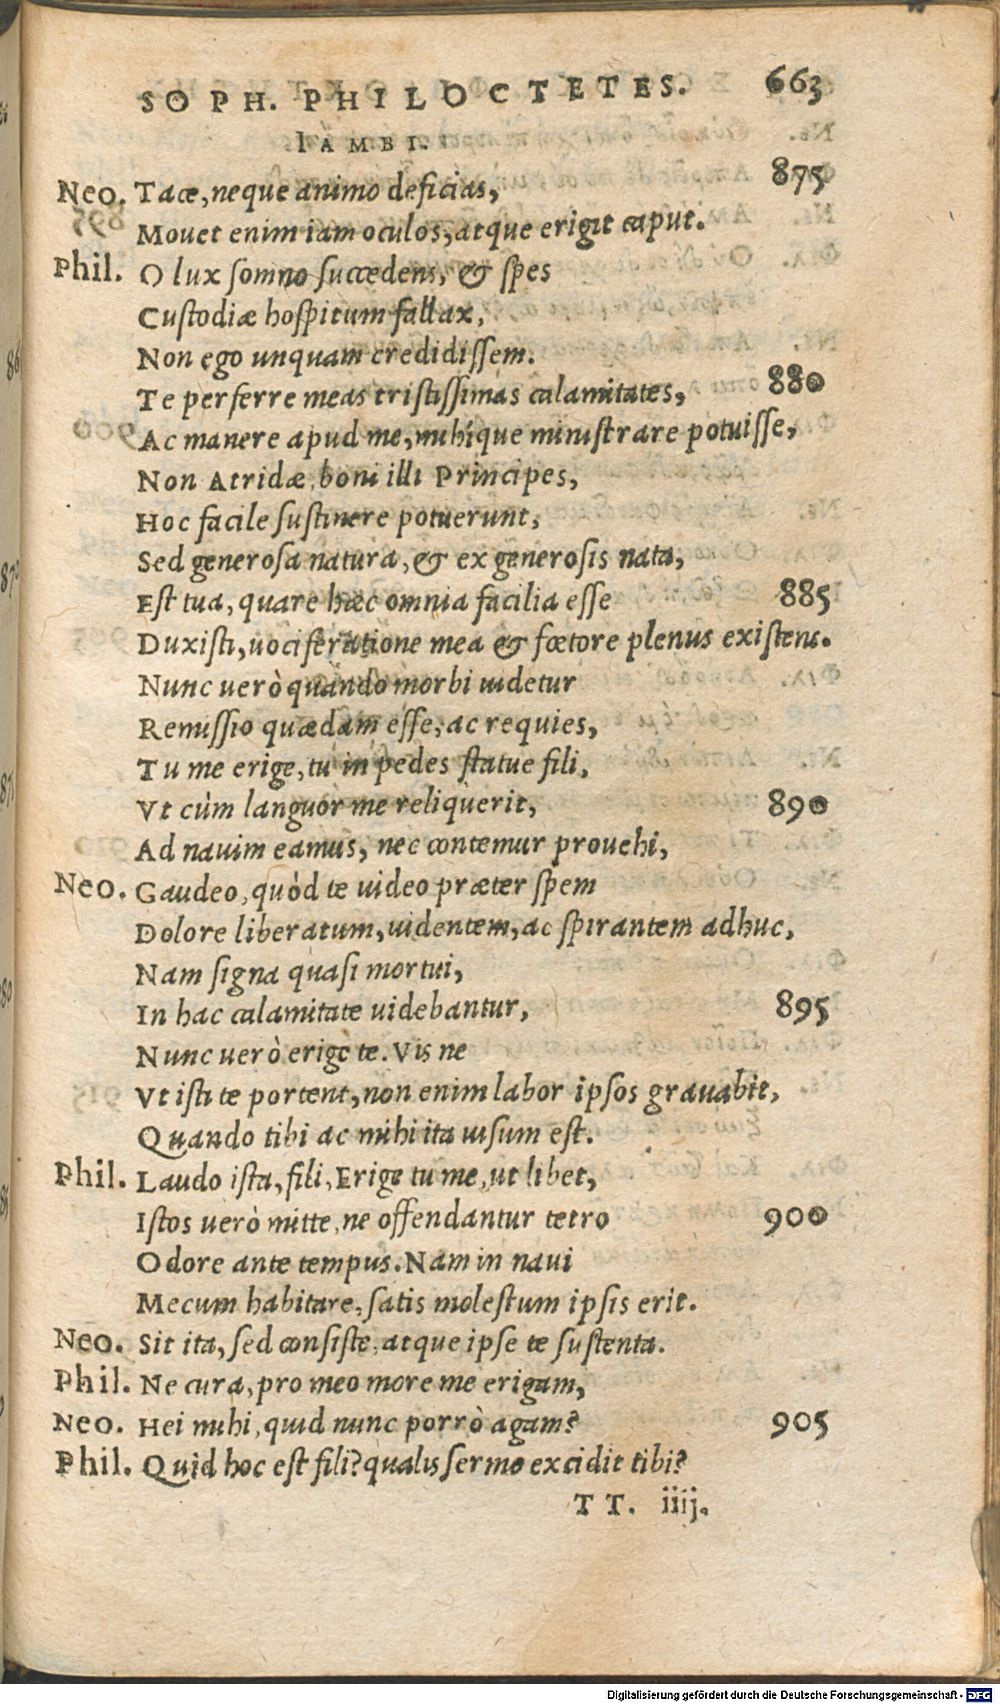 SOPH. PHILOCTETES. 663
IAMBI.
Neo. Tace, neque animo deficias, 875
Mouet enim iam oculos, atque erigit caput.
Phil. O lux somno succedens, & spes
Custodiæ hospitum fallax,
Non ego unquam credidissem.
Te perferre meas tristissimas calamitates, 880
Ac manere apud me, mihíque ministrare potuisse,
Non Atridæ, boni illi Principes,
Hoc facile sustinere potuerunt,
Sed generosa natura, & ex generosis nata,
Est tua, quare hæc omnia facilia esse 885
Duxisti, uociferatione mea & fœtore plenus existens.
Nunc uerò quando morbi uidetur
Remissio quædam esse, ac requies,
Tu me erige, tu in pedes statue fili,
Vt cùm languor me reliquerit, 890
Ad nauim eamus, nec contemur prouehi,
Neo. Gaudeo, quòd te uideo præter spem
Dolore liberatum, uidentem, ac spirantem adhuc,
Nam signa quasi mortui,
In hac calamitate uidebantur, 895
Nunc uerò erige te. Vis ne
Vt isti te portent, non enim labor ipsos grauabit,
Quando tibi ac mihi ita uisum est.
Phil. Laudo ista, fili, Erige tu me, ut libet,
Istos uerò mitte, ne offendantur tetro 900
Odore ante tempus. Nam in naui
Mecum habitare, satis molestum ipsis erit.
Neo. Sit ita, sed consiste, atque ipse te sustenta.
Phil. Ne cura, pro meo more me erigam,
Neo. Hei mihi, quid nunc porrò agam? 905
Phil. Quid hoc est fili? qualis sermo excidit tibi?
TT. iiij.
Digitalisierung gefördert durch die Deutsche Forschungsgemeinschaft - DFG